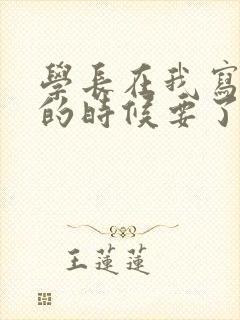 學長在我寫
的時候要了
王蓮蓮